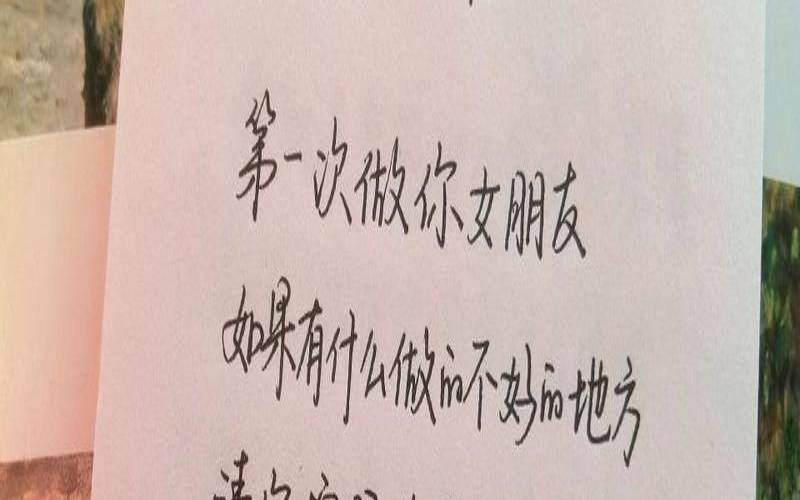 第一次做你女朋友
如果有什么做的不好的地方